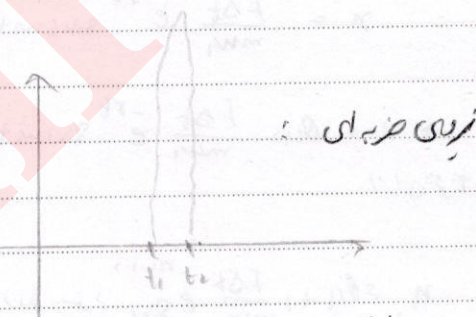 نیروی ضربه ای :
t₁ t₂